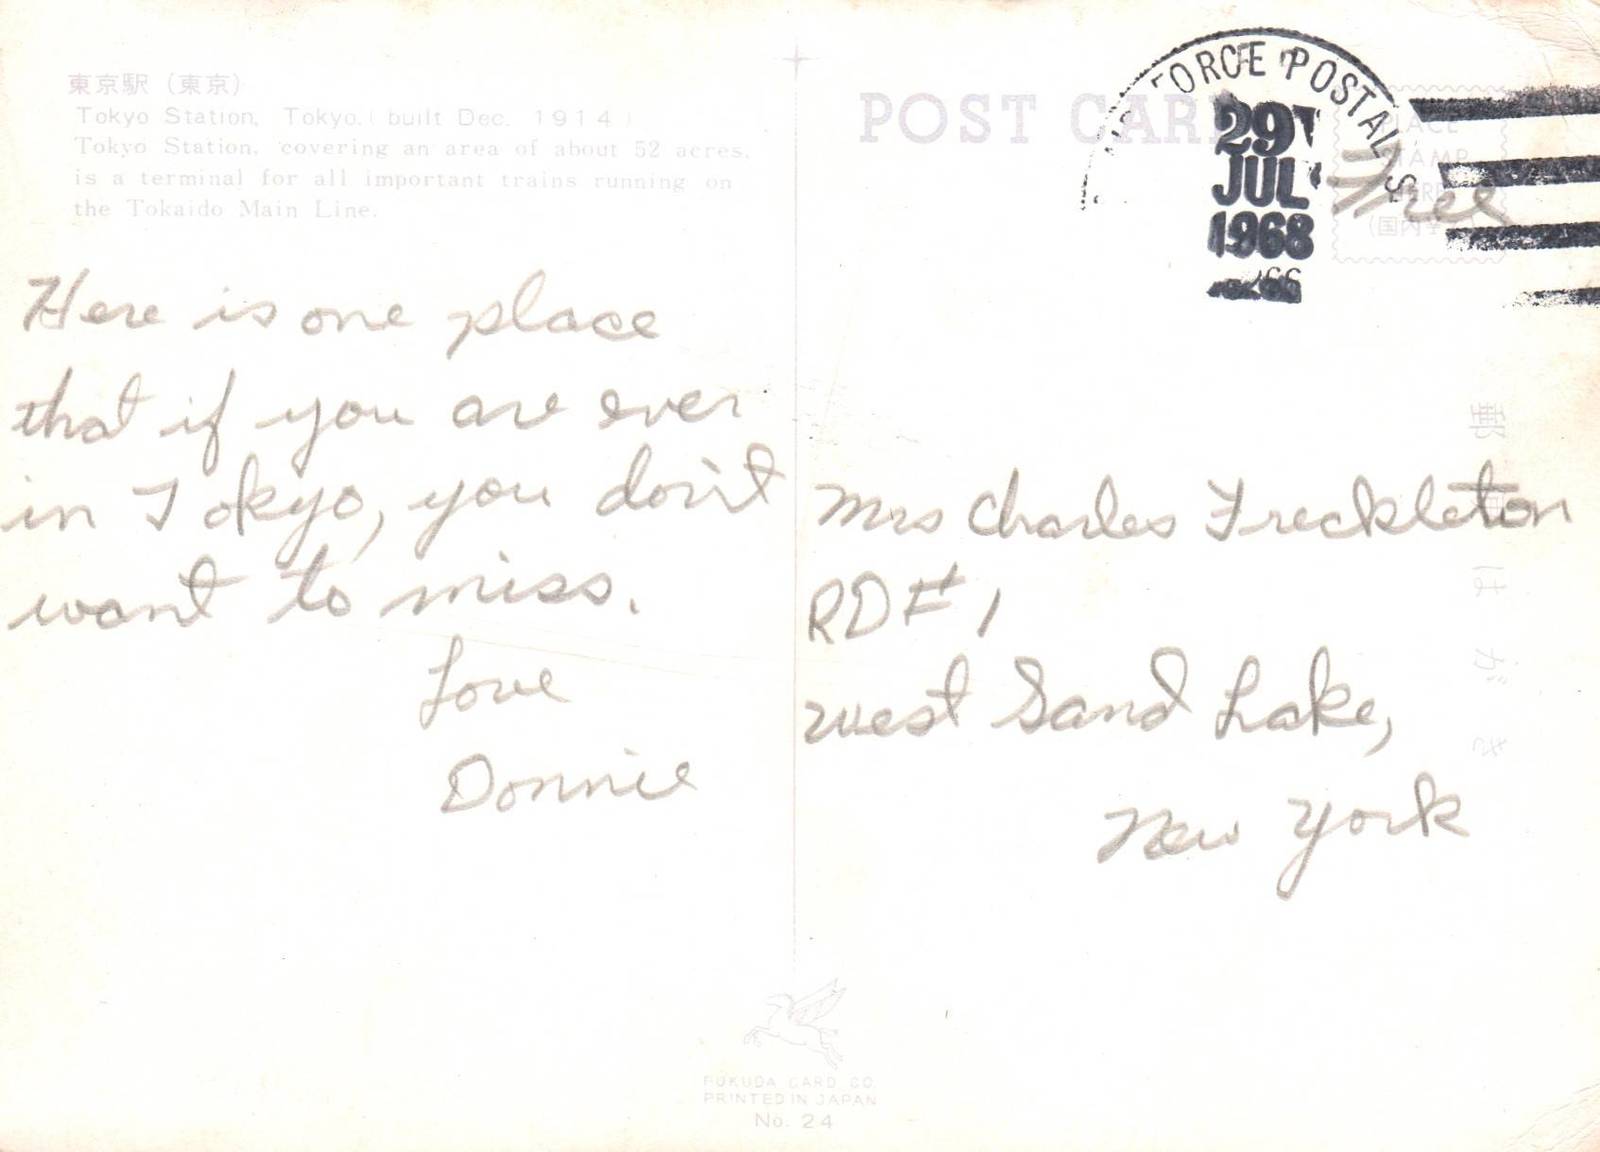 東京駅（東京）
Tokyo Station, Tokyo. (built Dec. 1914)
Tokyo Station, covering an area of about 52 acres,
is a terminal for all important trains running on
the Tokaido Main Line.
Here is one place
that if you are ever
in Tokyo, you don't
want to miss.
Love
Donnie
POST CARD
FORCE POSTAL S
29
JUL
1968
PLACE
STAMP
HERE
Free
郵便はがき
Mrs Charles Freckleton
RD # 1
West Sand Lake,
New York
FUKUDA CARD CO.
PRINTED IN JAPAN
No. 24